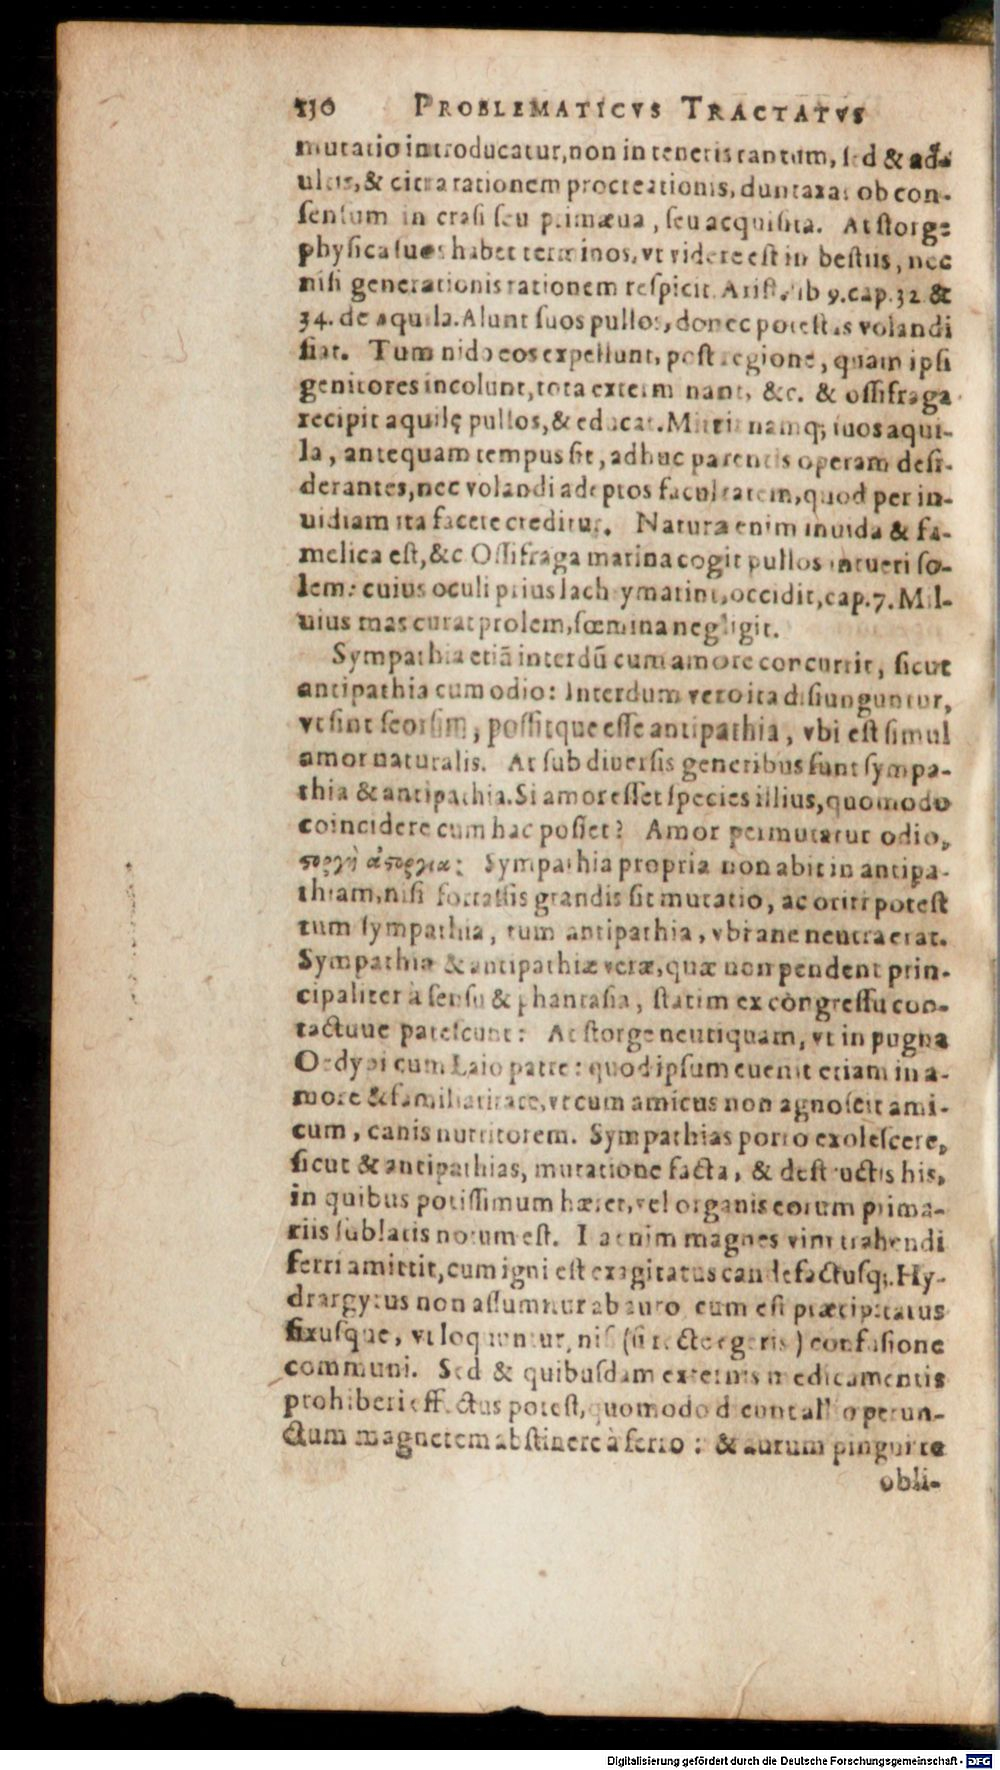 130 PROBLEMATICVS TRACTATVS
mutatio introducatur, non in teneris tantum, sed & ad-
ultis, & citra rationem procreationis, duntaxat ob con-
sensum in crasi seu primæua, seu acquisita. At storge
physica suos habet terminos, vt videre est in bestiis, nec
nisi generationis rationem respicit. Arist. lib 9. cap. 32 &
34. de aquila. Alunt suos pullos, donec potestas volandi
fiat. Tum nido eos expellunt, post regione, quam ipsi
genitores incolunt, tota exterminant, &c. & ossifraga
recipit aquilę pullos, & educat. Mittit namq; suos aqui-
la, antequam tempus sit, adhuc parentis operam desi-
derantes, nec volandi adeptos facultatem, quod per in-
uidiam ita facere creditur. Natura enim inuida & fa-
melica est, &c Ossifraga marina cogit pullos intueri so-
lem: cuius oculi prius lachrymarint, occidit, cap. 7. Mil-
uius mas curat prolem, fœmina negligit.
Sympathia etiã interdũ cum amore concurrit, sicut
antipathia cum odio: Interdum vero ita disiunguntur,
vt sint seorsim, possitque esse antipathia, vbi est simul
amor naturalis. At sub diuersis generibus sunt sympa-
thia & antipathia. Si amor esset species illius, quomodo
coincidere cum hac posset? Amor permutatur odio,
ϛοργὴ ἀϛοργια: Sympathia propria non abit in antipa-
thiam, nisi fortassis grandis sit mutatio, ac oriri potest
tum sympathia, tum antipathia, vbi ante neutra erat.
Sympathiæ & antipathiæ veræ, quæ non pendent prin-
cipaliter à sensu & phantasia, statim ex còngressu con-
tactuue patescunt: At storge neutiquam, vt in pugna
Oedypi cum Laio patre: quod ipsum euenit etiam in a-
more & familiaritate, vt cum amicus non agnoscit ami-
cum, canis nutritorem. Sympathias porro exolescere,
sicut & antipathias, mutatione facta, & destructis his,
in quibus potissimum hæret, vel organis eorum prima-
riis sublatis notum est. Ita enim magnes vim trahendi
ferri amittit, cum igni est exagitatus candefactusq;. Hy-
drargyrus non assumitur ab auro cum est præcipitatus
fixusque, vt loquuntur, nisi (si recte egeris) confusione
communi. Sed & quibusdam externis medicamentis
prohiberi effectus potest, quomodo dicunt allio perun-
ctum magnetem abstinere à ferro: & aurum pingui re
obli-
Digitalisierung gefördert durch die Deutsche Forschungsgemeinschaft - DFG